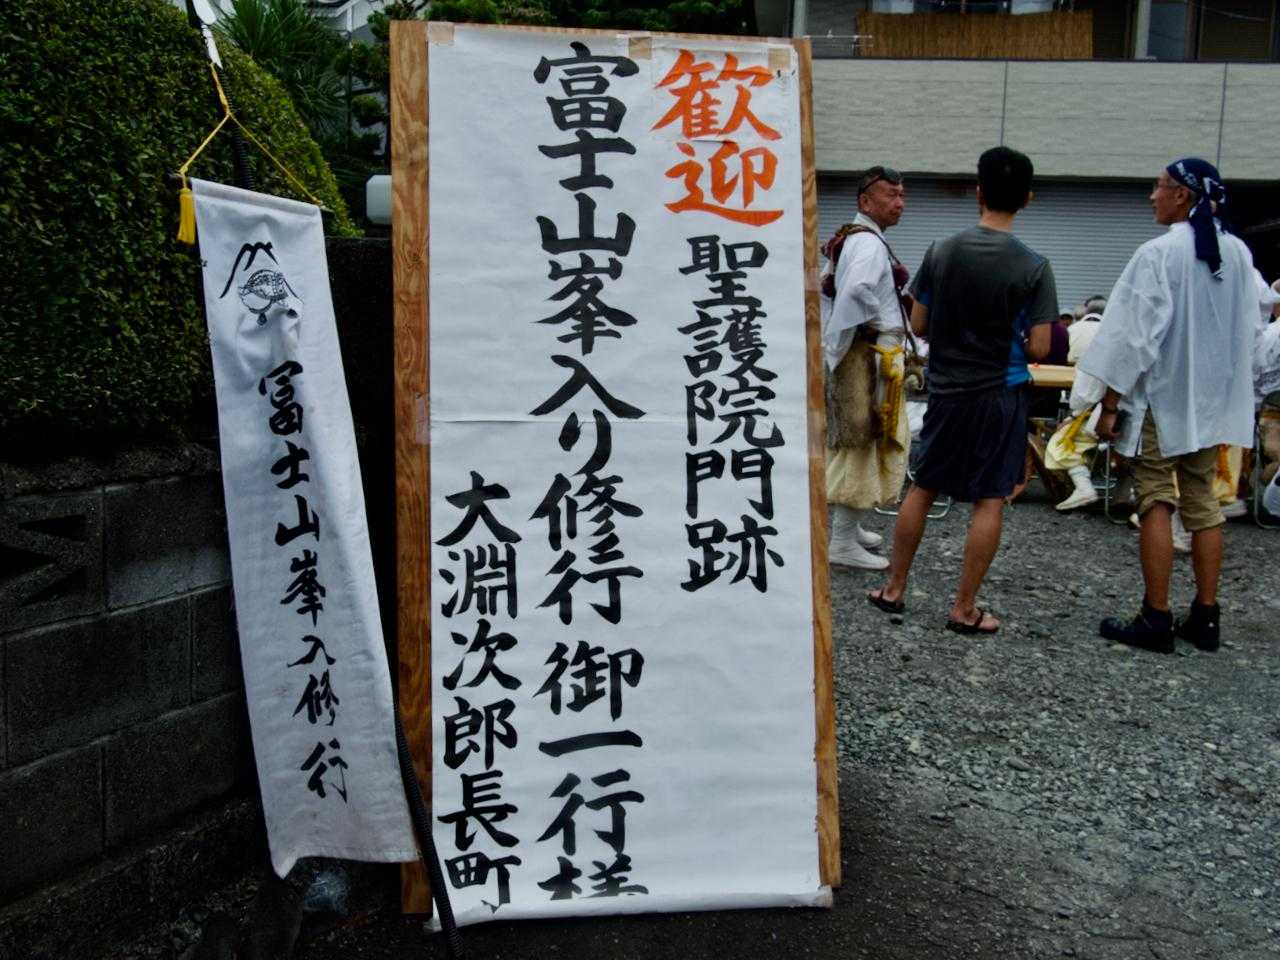 歓迎 聖護院門跡
富士山峯入り修行 御一行様
大淵次郎長町
冨士山峯入修行